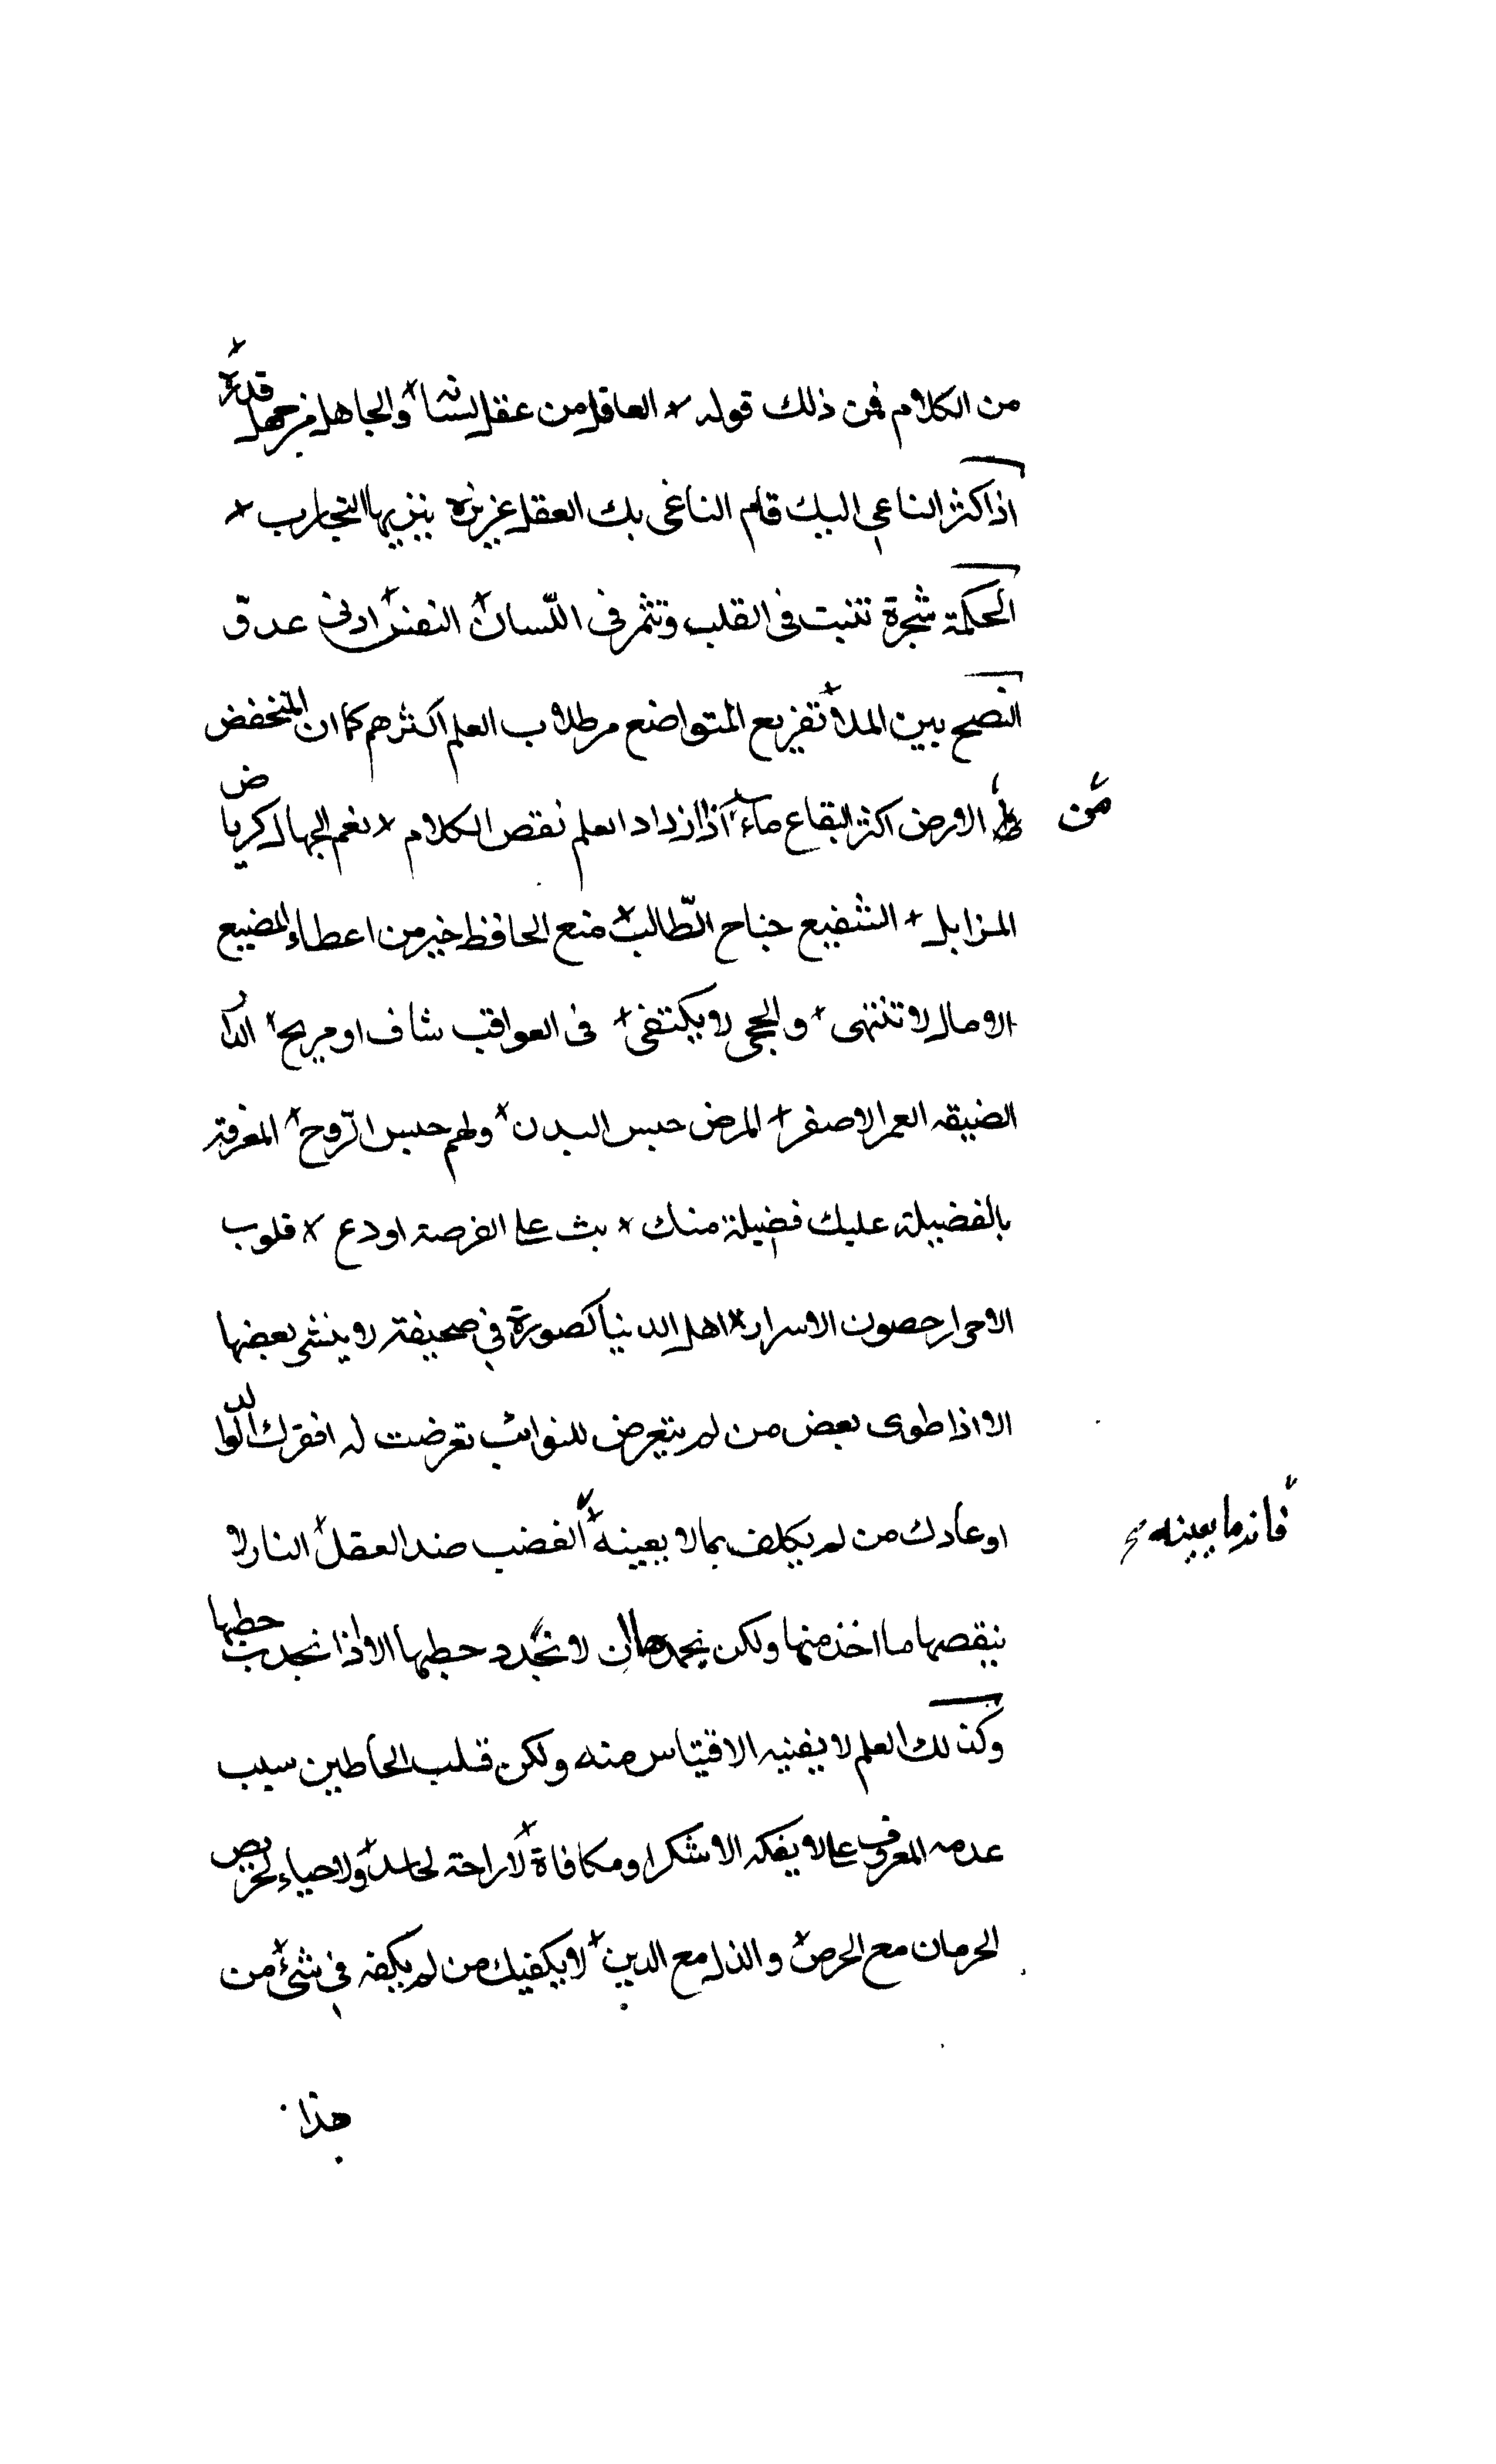 من الكلام فمن ذلك قوله العاقل من عقل لسانه والجاهل من جهل قدره
اذا كثر الناعى اليك قام الناعى بك العقل غريزة تزيها التجارب
الحكمة شجرة تنبت فى القلب وتثمر فى اللسان النفس ادنى عدو
النصح بين الملأ تقريع المتواضع من طلاب العلم اكثرهم كما ان المنخفض
من الارض اكثر البقاع ماء اذا ازداد العلم نقص الكلام نعم الجهال كرياض
المزابل الشفيع جناح الطالب منع الحافظ خير من اعطاء المضيع
الامال لا تنتهى والحجى لا يكتفى فى العواقب شاف او مريح الدار
الضيقه العمر الاصغر المرض حبس البدن والهم حبس الروح المعرفة
بالفضيلة عليك فضيلة منك بث على الفرصة اودع قلوب
الاحرار حصون الاسرار اهل الدنيا كصورة فى صحيفة لا ينشى بعضها
الا اذا طوى بعض من لم يتعرض للنوائب تعرضت له افقرك الولد
او عادك من لم يكلف بمالا يعينه الغضب ضد العقل النار لا
فاته ما يعينه
ينقصها ما اخذ منها ولكن يخمدها ان لا تجد حطبها الا اذا
وكذلك العلم لا يفنيه الاقتباس منه ولكن قلب الحاطبين سبب
عدمه المعروف على لا يفكه الا شكر او مكافاة لا راحة لحاسد ولا حياء لحريص
الحرمان مع الحرص والذل مع الدين لا يكفيك من لم يكفه فى شئ من
هذا